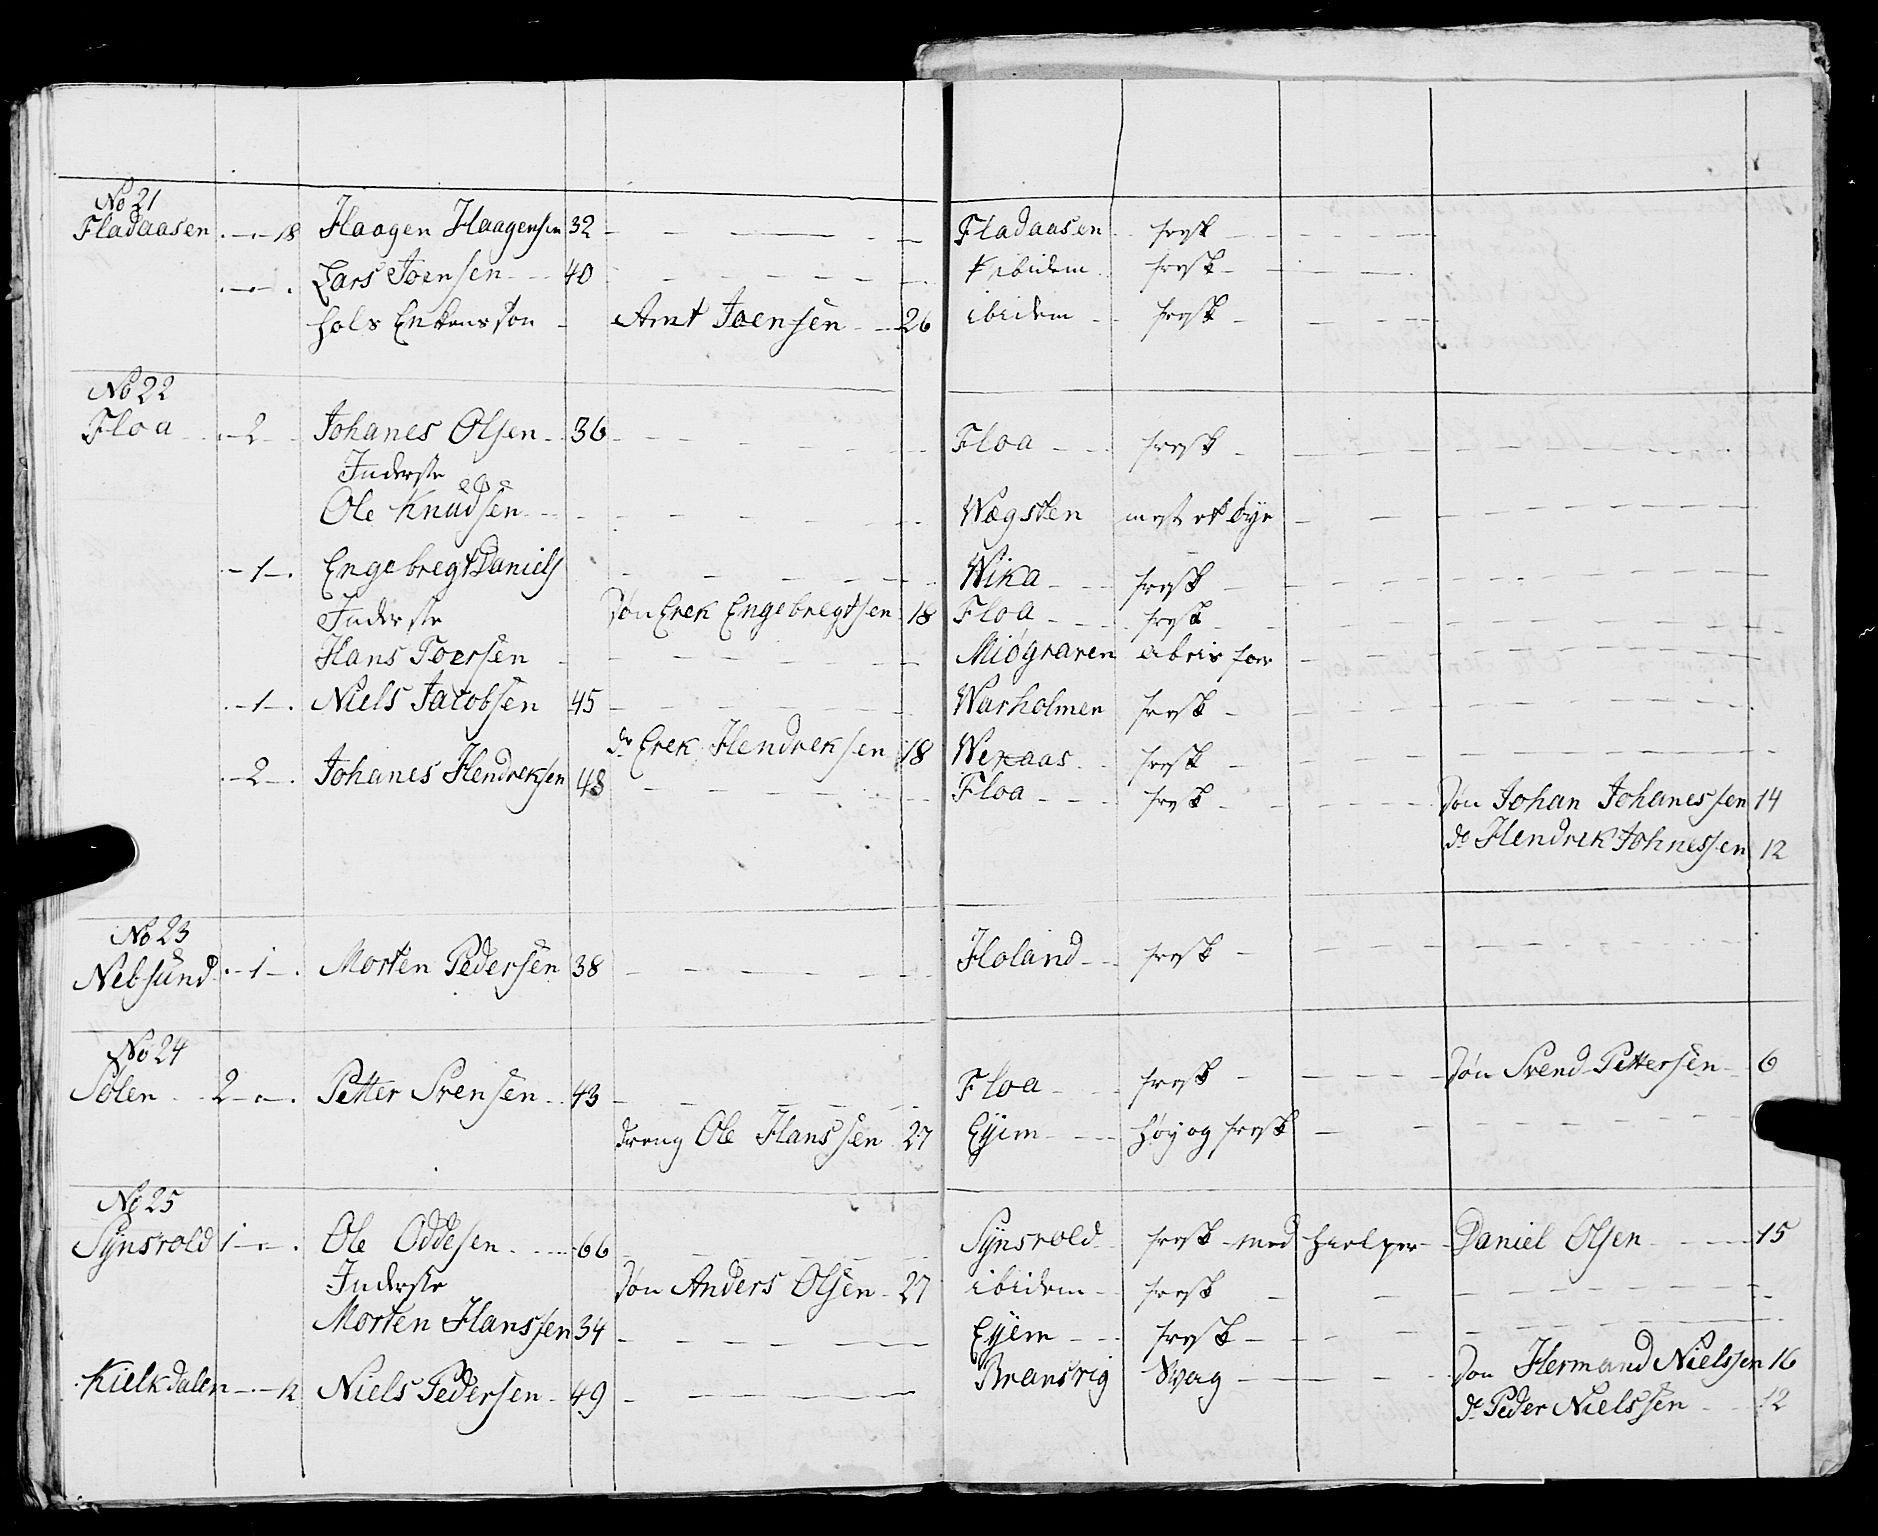 No 21
Fladaasen .-.- 18 Haagen Haagensen 32 - - - - Fladaasen frisk - - - -
.-.-. Lars Joensen - - 40 - - - - ibidem frisk - - - -
hos Enkens Søn - Arnt Joensen - - 26 ibidem - - frisk - - - -
No 22
Floa - 2 - Johanes Olsen - - 36 - - - - Floa - - - frisk - - - -
Inderste
Ole Knudsen - - - - - - Wægsten mest et øye - - - -
- 1 - . Engebregt Daniels - - - - Wika - - - frisk - - - -
Inderste Søn Erek Engebregtsen 18 Floa - - - frisk - - - -
Hans Toersen - - - - Miøgraven - - - -
. - 1 - . Niels Jacobsen 45 - - - - Warholmen frisk - - - -
do Erek Hendreksen 18 Weraas - - frisk - - - -
. - 2 - . Johanes Hendreksen 48 - - - - Floa - - - frisk - - - - Søn Johan Johanessen 14
do Hendrek Johnessen 12
No 23
Nebsund . - 1 - . Morten Pedersen 38 - - - - Holand - - frisk - - - -
No 24
Solen - - 2 - . - . Petter Svensen - - 43 - - - - Floa - - - frisk - - - - Søn Svend Pettersen - 6
dreng Ole Hanssen 27 Eyem - - - høy og frisk - - - -
No 25
Synsvold 1 - . - . Ole Oddesen - - - 66 - - - - Synsvold - frisk - med hielper - Daniel Olsen - - - 15
Inderste Søn Anders Olsen - 27 ibidem - - frisk - - - -
Morten Hanssen 34 - - - - Eyem - - - frisk - - - -
Kielkdalen - . - 12 Niels Pedersen - 49 - - - - Bransvig Svag - - - - Søn Hermand Nielssen 16
do Peder Nielssen - - 12